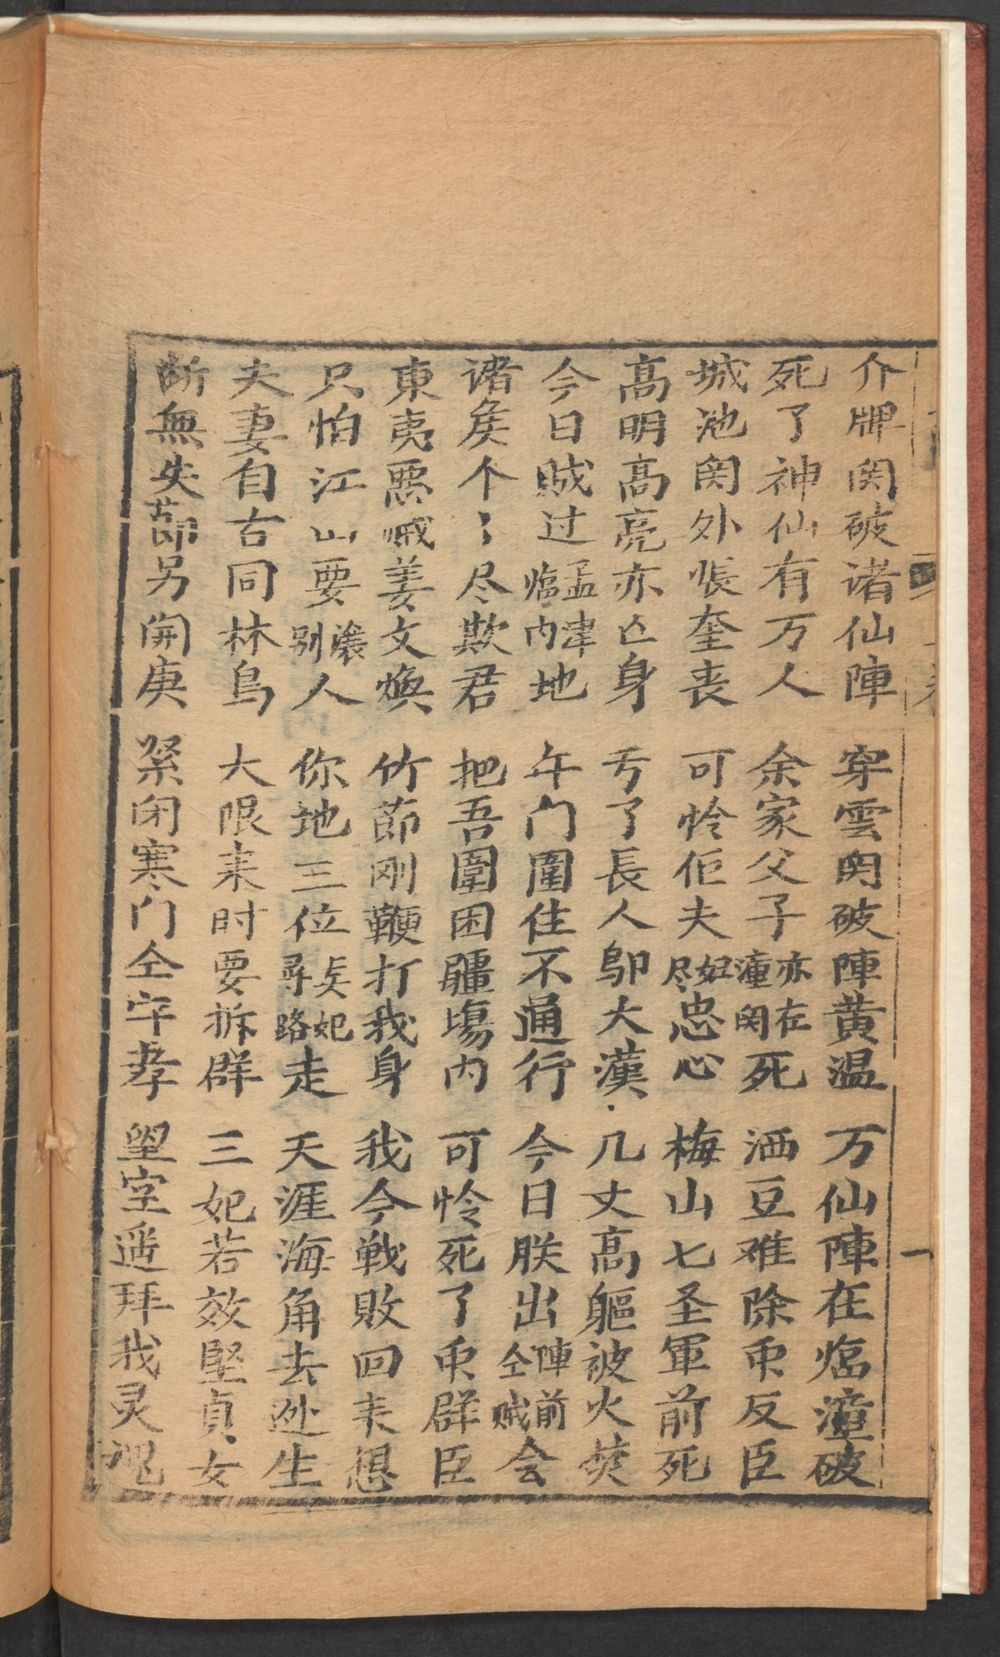 介牌関破诸仙陣 穿雲関破陣黄温 万仙陣在临潼破
死了神仙有万人 余家父子亦在潼関死 洒豆难除耒反臣
城池関外張奎丧 可怜佢夫妃尽忠心 梅山七圣軍前死
高明高亮亦亡身 亏了長人鄔大漢 几丈高軀被火焚
今日贼过孟津临内地 午门圍住不通行 今日朕出陣前仝贼会
诸矦个〻尽欺君 把吾圍困疆場内 可怜死了耒群臣
東夷悪贼姜文焕 竹節刚鞭打我身 我今戦敗回来想
只怕江山要讓别人 你地三位美妃尋路走 天涯海角去迯生
夫妻自古同林鳥 大限来时要拆群 三妃若效堅貞女
断無失節另開庚 紧闭寒门仝守孝 望空遥拜我灵魂